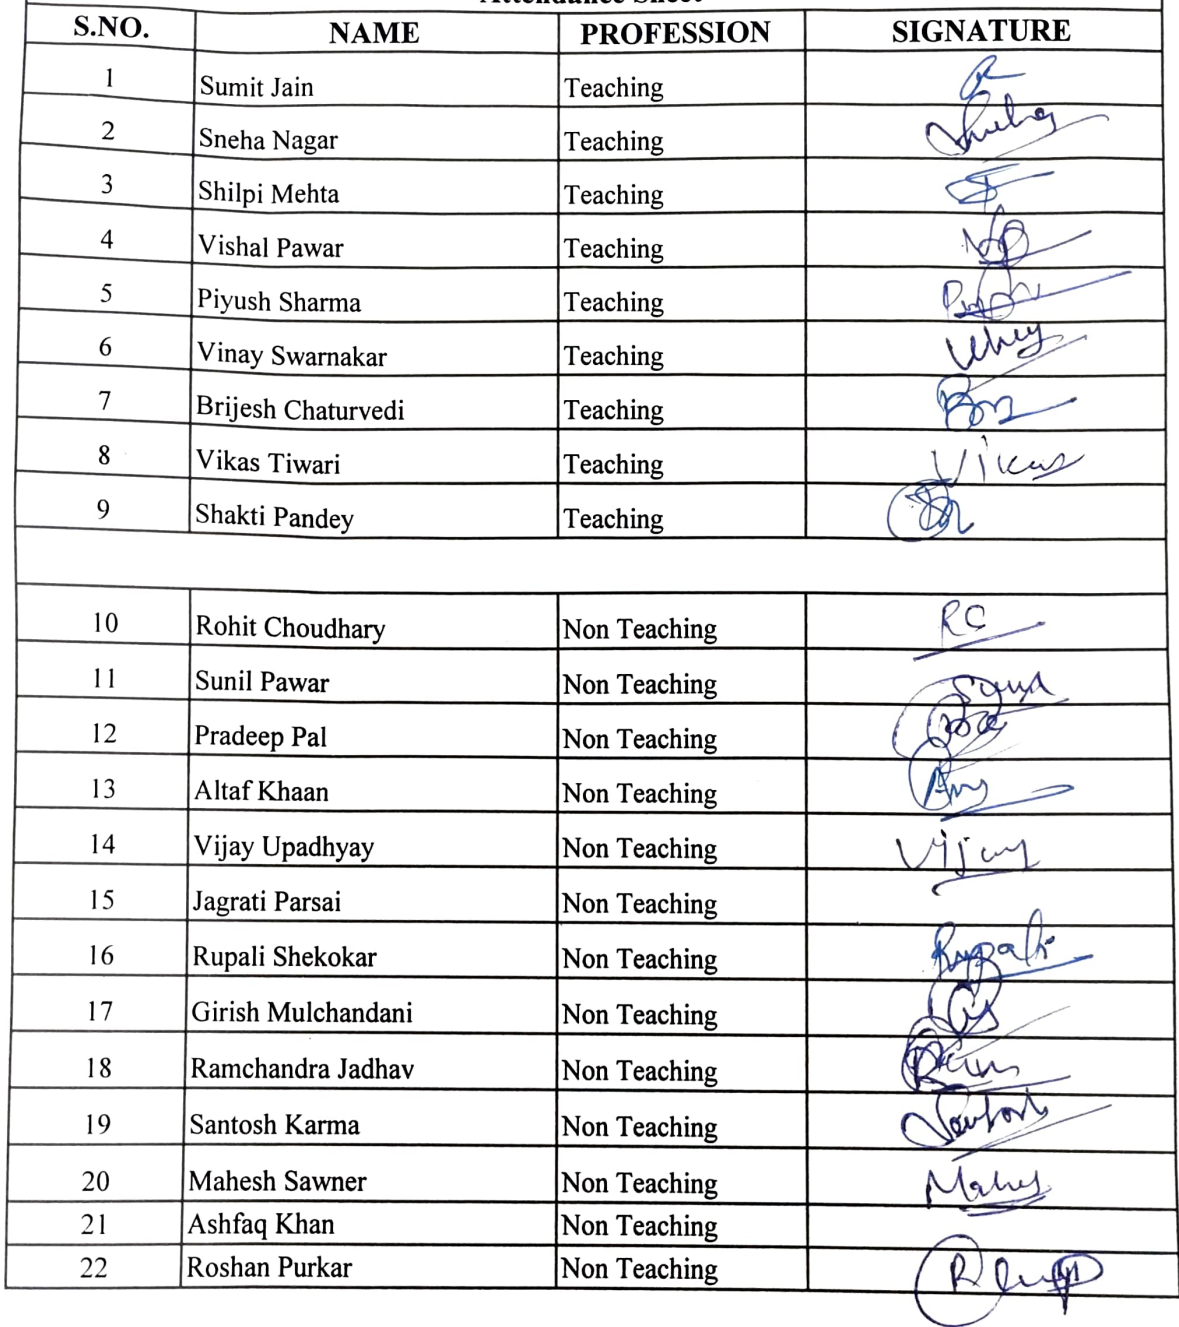 Attendance Sheet
S.NO. NAME PROFESSION SIGNATURE
1 Sumit Jain Teaching
2 Sneha Nagar Teaching Sneha
3 Shilpi Mehta Teaching
4 Vishal Pawar Teaching
5 Piyush Sharma Teaching
6 Vinay Swarnakar Teaching
7 Brijesh Chaturvedi Teaching
8 Vikas Tiwari Teaching Vikas
9 Shakti Pandey Teaching
10 Rohit Choudhary Non Teaching RC
11 Sunil Pawar Non Teaching
12 Pradeep Pal Non Teaching
13 Altaf Khaan Non Teaching
14 Vijay Upadhyay Non Teaching Vijay
15 Jagrati Parsai Non Teaching
16 Rupali Shekokar Non Teaching Rupali
17 Girish Mulchandani Non Teaching
18 Ramchandra Jadhav Non Teaching Ram
19 Santosh Karma Non Teaching Santosh
20 Mahesh Sawner Non Teaching
21 Ashfaq Khan Non Teaching
22 Roshan Purkar Non Teaching